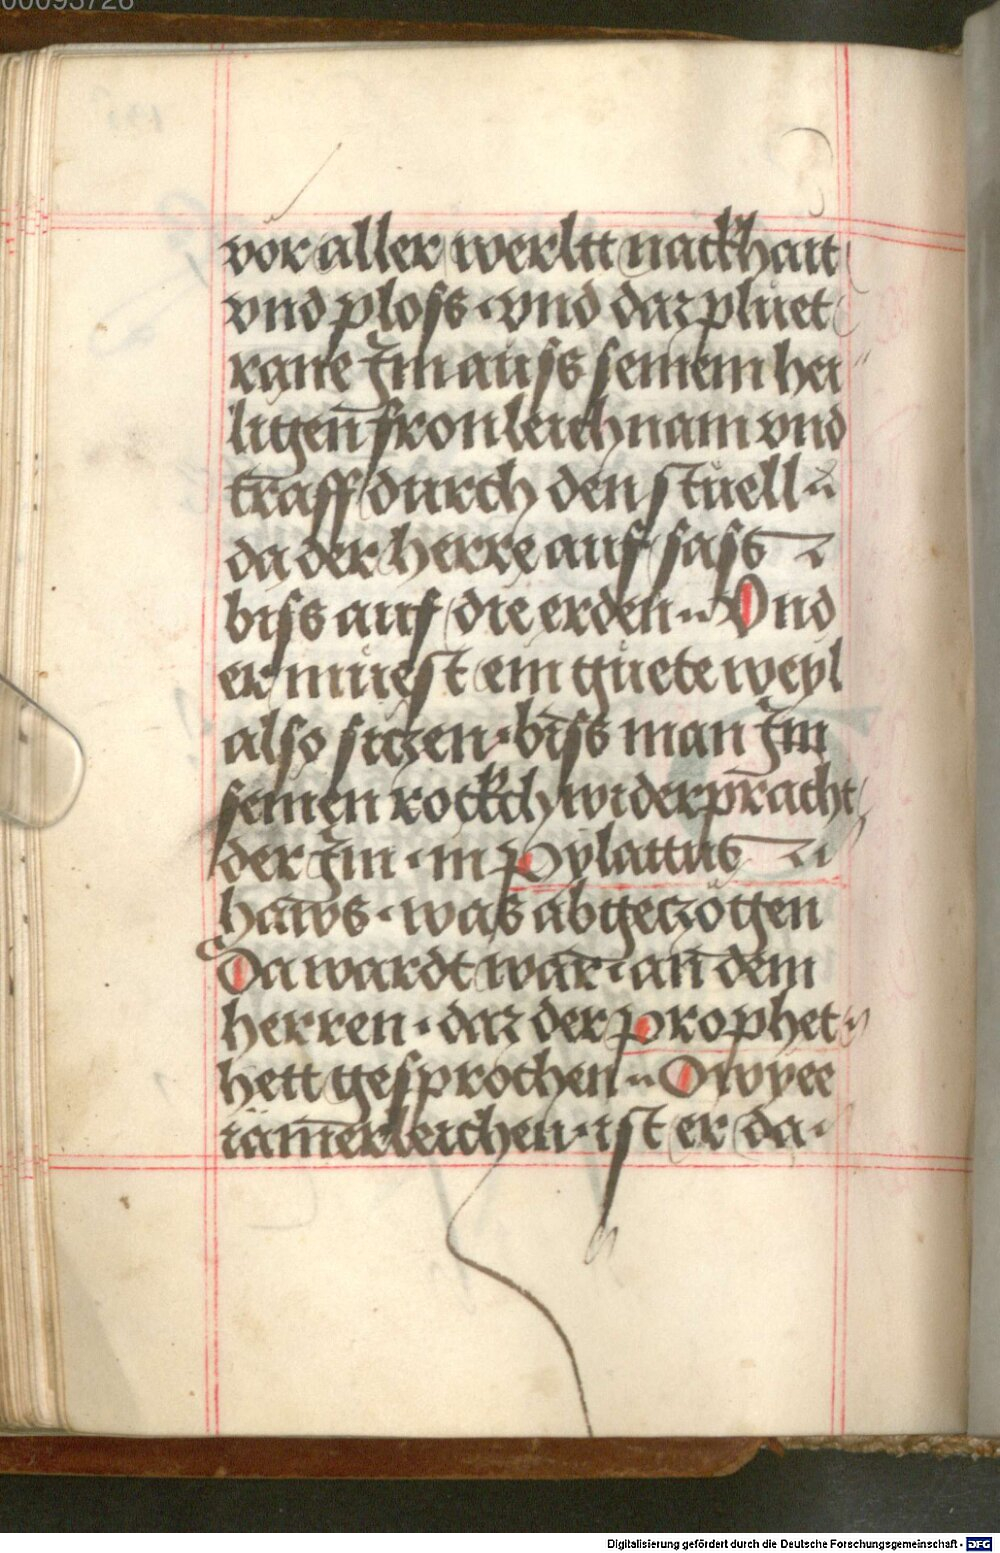 00095726
vor aller werltt nackhatt
vnd ploss · vnd daz pluet
rane Jm auss seinem hei
ligen̄ fronleichnam vnd
traff durch den stuell
da der herre auf sass
biss auf die erden ·· Vnd
er müest ein guete weyl
also siczen · biss man Jm
seinen rockch widerpracht
der Jm · in pylattus
haws · was abgeczogen
Da wardt war · an dem
herren · daz der prophet
hett gesprochen ·· O wyee
iam̄erleichen · ist er da ·
Digitalisierung gefördert durch die Deutsche Forschungsgemeinschaft - DFG